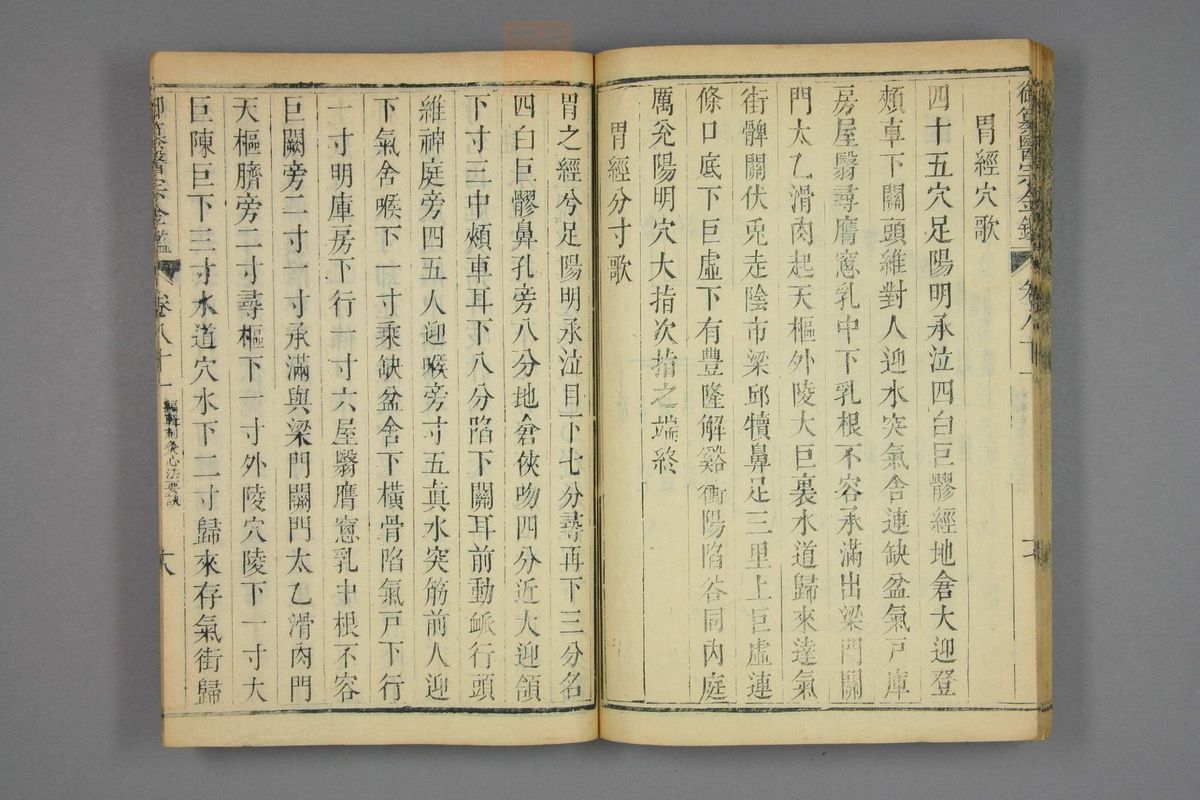 御纂醫宗金鑑
胃經穴歌
四十五穴足陽明承泣四白巨髎經地倉大迎登
頰車下關頭維對人迎水突氣舍連缺盆氣戶庫
房屋翳尋膺窻乳中下乳根不容承滿出梁門關
門太乙滑肉起天樞外陵大巨裏水道歸來達氣
街髀關伏兎走陰市梁邱犢鼻足三里上巨虛連
條口底下巨虛下有豐隆解谿衝陽陷谷同內庭
厲兊陽明穴大指次指之端終
胃經分寸歌
胃之經兮足陽明承泣目下七分尋再下三分名
四白巨髎鼻孔旁八分地倉俠吻四分近大迎頷
下寸三中頰車耳下八分陷下關耳前動脈行頭
維神庭旁四五人迎喉旁寸五眞水突筋前人迎
下氣舍喉下一寸乘缺盆舍下橫骨陷氣戶下行
一寸明庫房下行一寸六屋翳膺窻乳中根不容
巨闕旁二寸一寸承滿與梁門關門太乙滑肉門
天樞臍旁二寸尋樞下一寸外陵穴陵下一寸大
巨陳巨下三寸水道穴水下二寸歸來存氣街歸
御纂醫宗金鑑 卷八十一 編輯刺灸心法要訣 十八